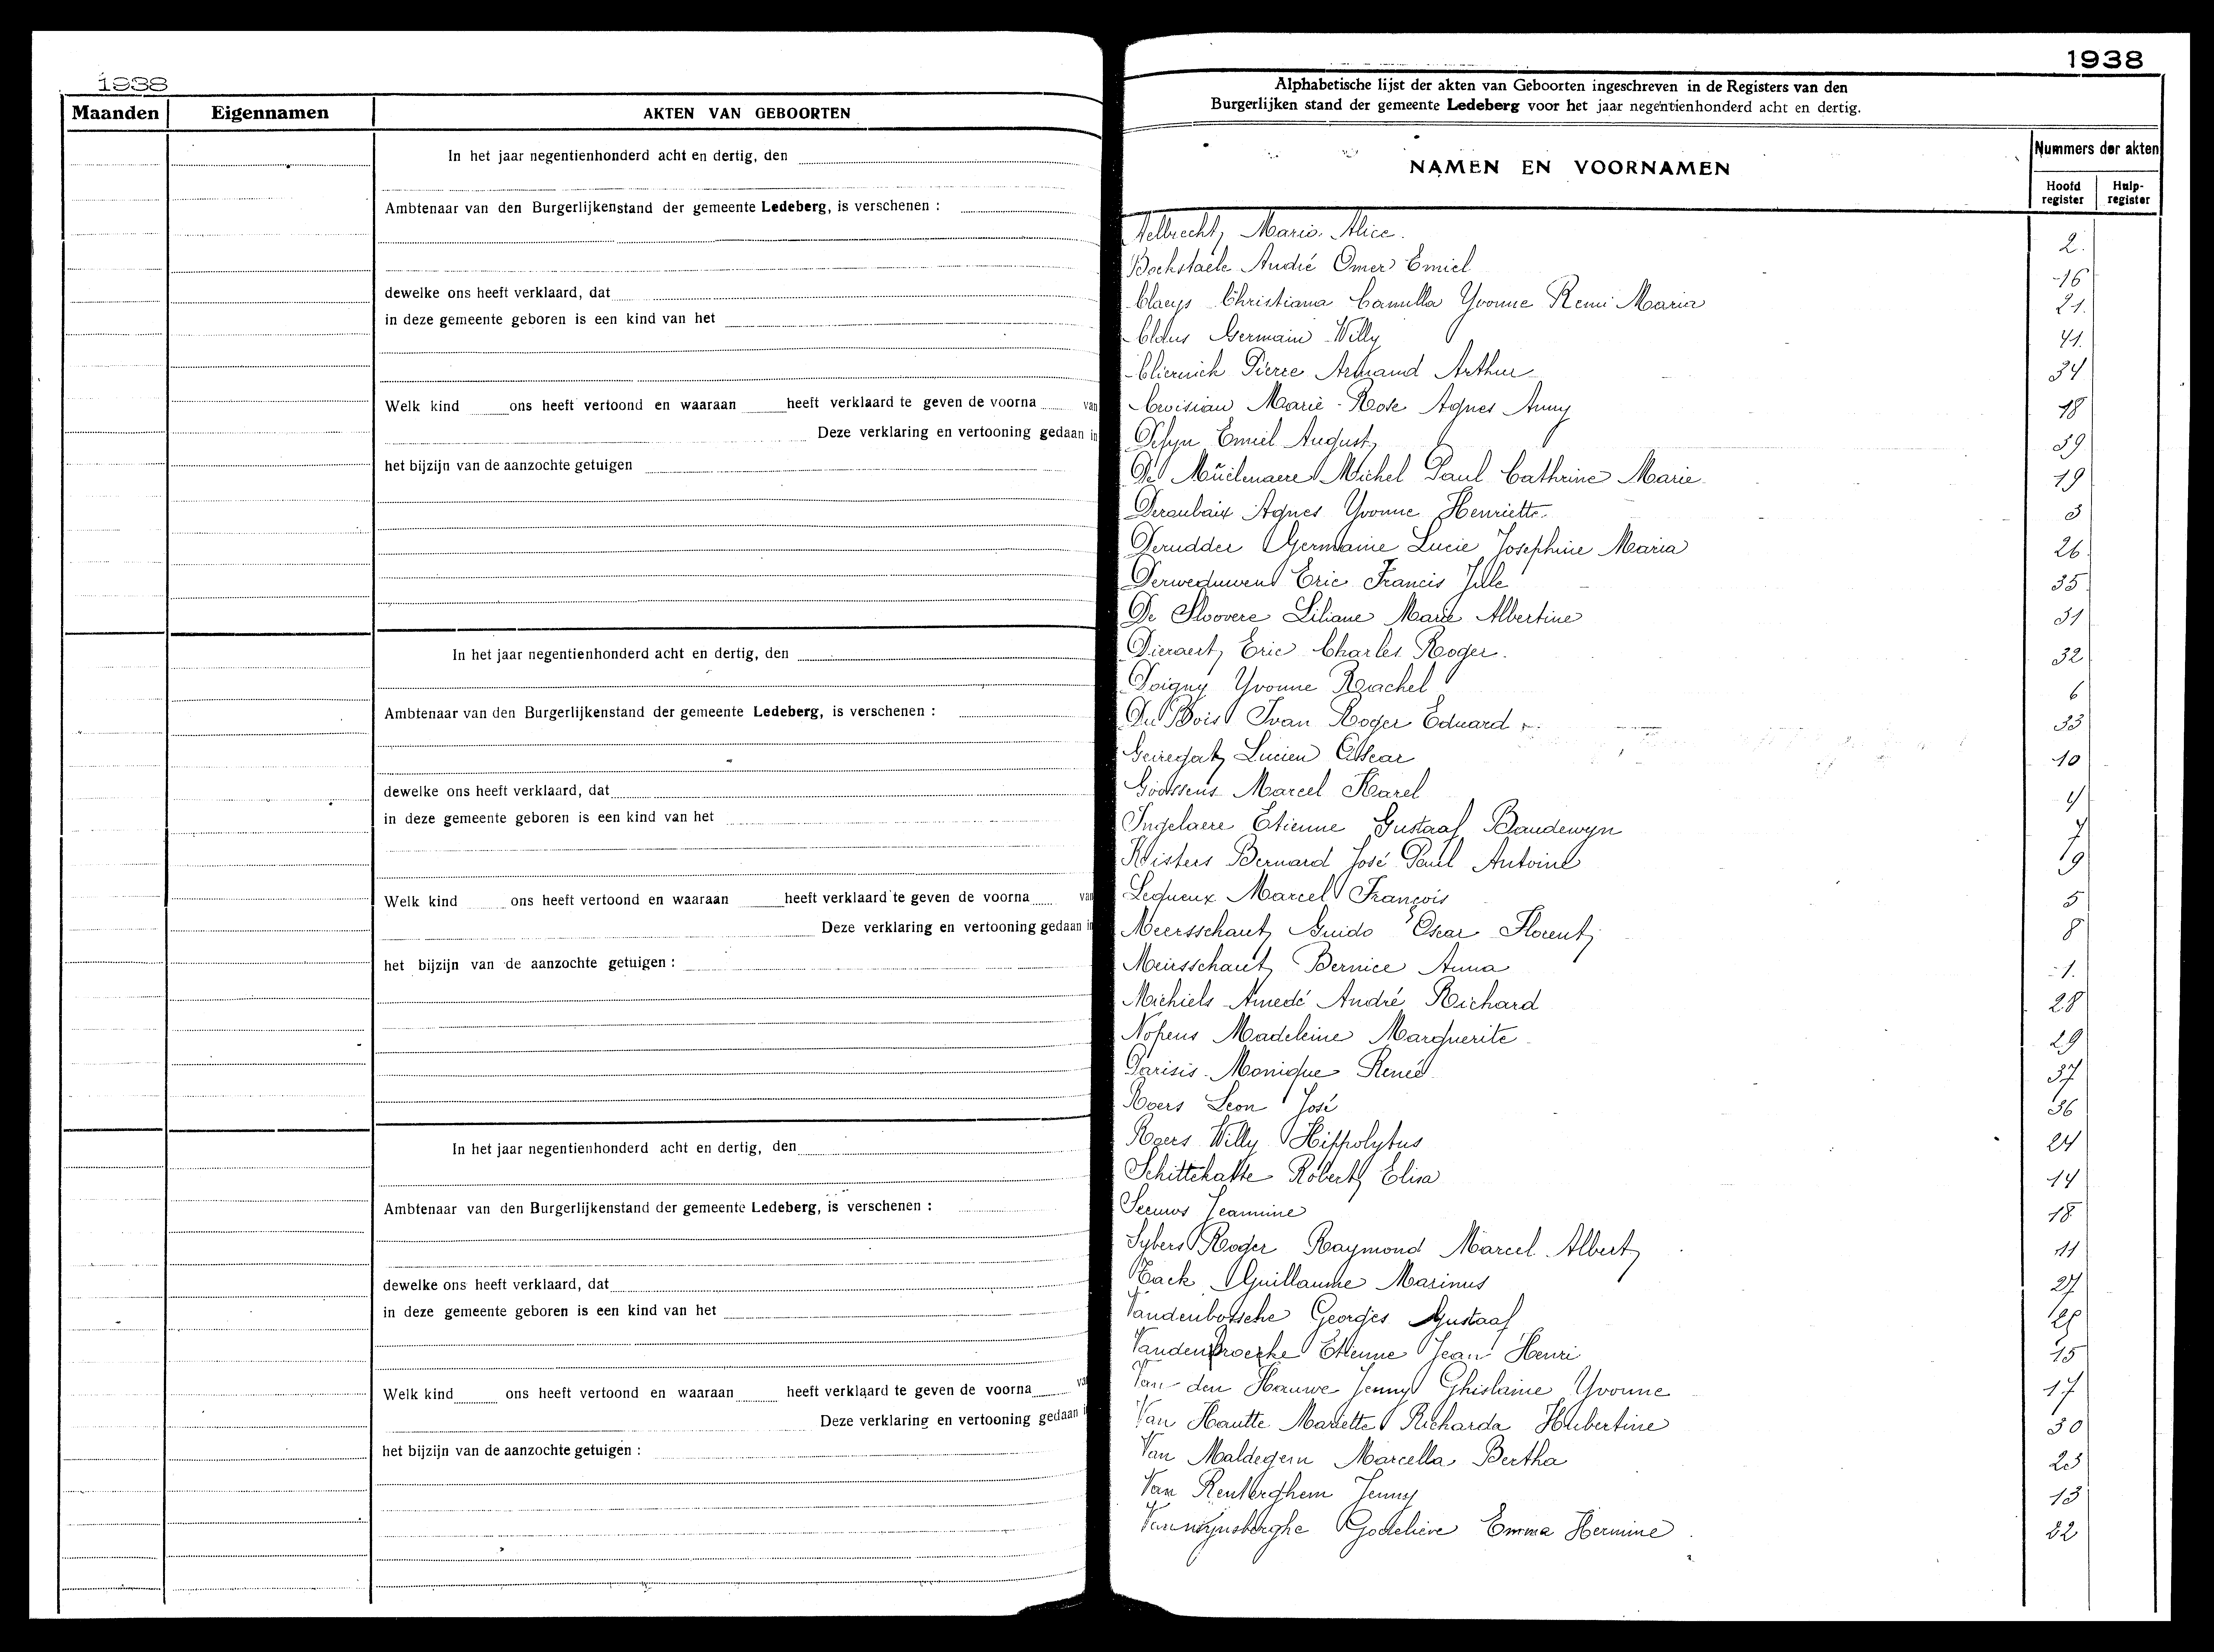 1938
Maanden Eigennamen AKTEN VAN GEBOORTEN
In het jaar negentienhonderd acht en dertig, den
Ambtenaar van den Burgerlijkenstand der gemeente Ledeberg, is verschenen :
dewelke ons heeft verklaard, dat
in deze gemeente geboren is een kind van het
Welk kind ons heeft vertoond en waaraan heeft verklaard te geven de voorna van
Deze verklaring en vertooning gedaan in
het bijzijn van de aanzochte getuigen
In het jaar negentienhonderd acht en dertig, den
Ambtenaar van den Burgerlijkenstand der gemeente Ledeberg, is verschenen :
dewelke ons heeft verklaard, dat
in deze gemeente geboren is een kind van het
Welk kind ons heeft vertoond en waaraan heeft verklaard te geven de voorna van
Deze verklaring en vertooning gedaan in
het bijzijn van de aanzochte getuigen :
In het jaar negentienhonderd acht en dertig, den
Ambtenaar van den Burgerlijkenstand der gemeente Ledeberg, is verschenen :
dewelke ons heeft verklaard, dat
in deze gemeente geboren is een kind van het
Welk kind ons heeft vertoond en waaraan heeft verklaard te geven de voorna va
Deze verklaring en vertooning gedaan i
het bijzijn van de aanzochte getuigen :
1938
Alphabetische lijst der akten van Geboorten ingeschreven in de Registers van den
Burgerlijken stand der gemeente Ledeberg voor het jaar negentienhonderd acht en dertig.
NAMEN EN VOORNAMEN Nummers der akten
Hoofd register Hulp-register
Aelbrecht Maria Alice. 2.
Bockstaele André Omer Emiel 16
Claeys Christiana Camilla Yvonne Remi Maria 21.
Claus Germain Willy 41.
Pierre Armand Arthur 34
Marie-Rose Agnes Anny 18
Defyn Emiel August 39
De Muelenaere Michel Paul Cathrine Marie 19
Deroubaix Agnes Yvonne Henriette 3
Derudder Germaine Lucie Josephine Maria 26
Derweduwen Eric Francis 35
De Sloovere Liliane Marie Albertine 31
Dieraert Eric Charles Roger. 32
Doigny Yvonne Rachel 6
Du Bois Ivan Roger Eduard 33
Geiregat Lucien Oscar 10
Goossens Marcel Karel 4
Ingelaere Etienne Gustaaf Baudewyn 7
Kisters Bernard José Paul Antoine 9
Lequeux Marcel François 5
Meersschaut Guido Oscar Florent 8
Meirsschaut Bernice Anna 1.
Michiels Amedé André Richard 28
Nopens Madeleine Marguerite 29
Parisis Monique Renée 37
Roers Leon José 36
Roers Willy Hippolytus 24
Schittekatte Robert Elisa 14
Seeuws Jeannine 18
Sybers Roger Raymond Marcel Albert 11
Tack Guillaume Marinus 27
Vandenbossche Georges Gustaaf 25
Vandenbroecke Etienne Jean Henri 15
Van den Hauwe Jenny Ghislaine Yvonne 17
Van Hautte Mariette Richarda Hubertine 30
Van Maldegem Marcella Bertha 23
Van Renterghem Jenny 13
Vanwynsberghe Godelieve Emma Hermine 22